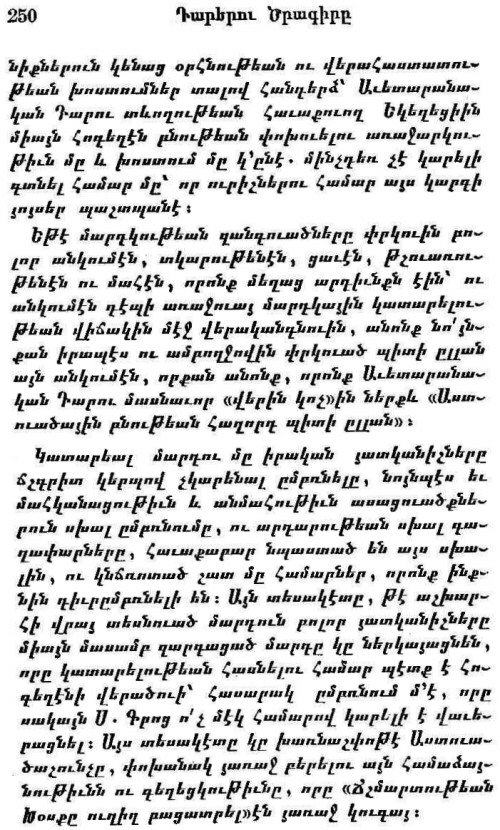 250 Դարերու Ծրագիրը
նիքներուն կենաց օրհնութեան ու վերահաստատու-
թեան խոստումներ տալով հանդերձ՝ Աւետարանա-
կան Դարու տևողութեան Հաւաքուող Եկեղեցիին
միայն հոգեղէն բնութեան փոխուելու առաջարկու-
թիւն մը և խոստում մը կ՚ընէ. մինչդեռ չէ կարելի
գտնել համար մը՝ որ ուրիշներու համար այս կարգի
յոյսեր պաշտպանէ։
Եթէ մարդկութեան զանգուածները փրկուին բո-
լոր անկումէն, տկարութենէն, ցաւէն, թշուառու-
թենէն ու մահէն, որոնք մեղաց արդիւնքն էին՝ ու
անկումէն դէպի առաջուայ մարդկային կատարելու-
թեան վիճակին մէջ վերականգնուին, անոնք նո՛յն-
քան իրապէս ու ամբողջովին փրկուած պիտի ըլլան
այն անկումէն, որքան անոնք, որոնք Աւետարանա-
կան Դարու մասնաւոր «վերին կոչ»ին ներքև «Աստ-
ուածային բնութեան հաղորդ պիտի ըլլան»։
Կատարեալ մարդու մը իրական յատկանիչները
ճշգրիտ կերպով չկարենալ ըմբռնելը, նոյնպէս եւ
մահկանացութիւն և անմահութիւն ասացուածքնե-
րուն սխալ ըմբռնումը, ու արդարութեան սխալ գա-
ղափարները, հաւաքաբար նպաստած են այս սխա-
լին, ու կնճռոտած շատ մը համարներ, որոնք ինք-
նին դիւրըմբռնելի են։ Այն տեսակէտը, թէ աշխար-
հի վրայ տեսնուած մարդուն բոլոր յատկանիչները
միայն մասամբ զարգացած մարդը կը ներկայացնեն,
որը կատարելութեան հասնելու համար պէտք է հո-
գեղէնի վերածուի՝ հասարակ ըմբռնում մ՚է, որը
սակայն Ս. Գրոց ո՛չ մէկ համարով կարելի է վաւե-
րացնել։ Այս տեսակէտը կը խառնաշփոթէ Աստուա-
ծաշունչը, փոխանակ յառաջ բերելու այն համաձայ-
նութիւնն ու գեղեցկութիւնը, որը «Ճշմարտութեան
Խօսքը ուղիղ բացատրել»էն յառաջ կուգայ։